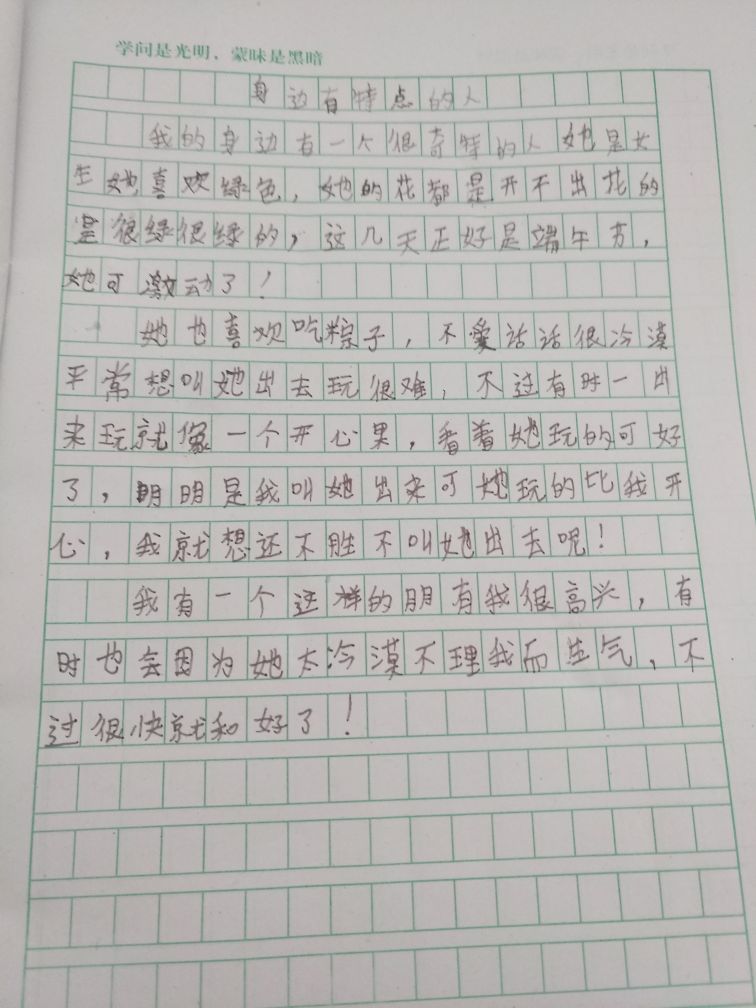 学问是光明、蒙昧是黑暗
身边有特点的人
我的身边有一个很奇特的人她是女
生她喜欢绿色，她的花都是开不出花的
是很绿很绿的，这几天正好是端午节，
她可激动了！
她也喜欢吃粽子，不爱话话很冷漠
平常想叫她出去玩很难，不过有时一出
来玩就像一个开心果，看着她玩的可好
了，明明是我叫她出来可她玩的比我开
心，我就想还不胜不叫她出去呢！
我有一个这样的朋有我很高兴，有
时也会因为她太冷漠不理我而生气，不
过很快就和好了！